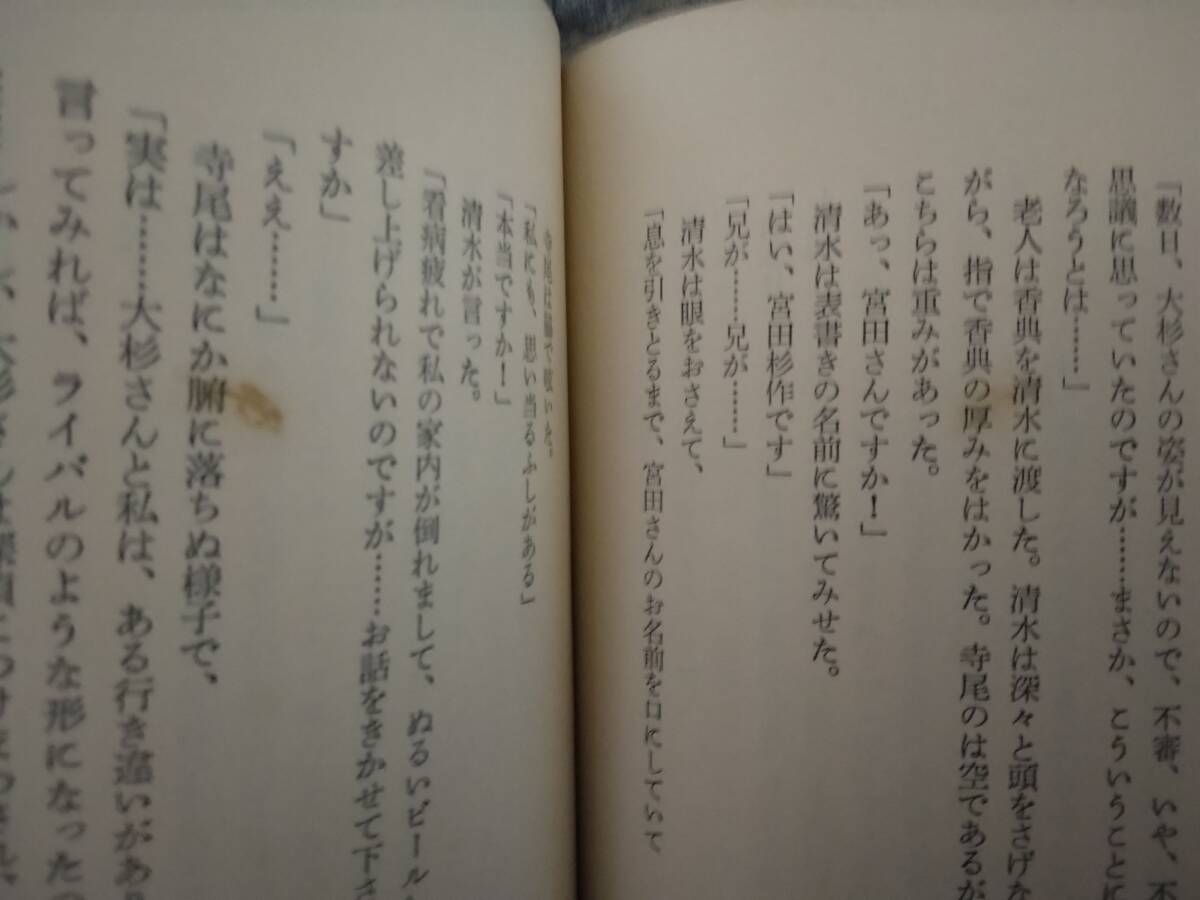 「数日、大杉さんの姿が見えないので、不審、いや、不
思議に思っていたのですが……まさか、こういうことに
なろうとは……」
老人は香典を清水に渡した。清水は深々と頭をさげな
がら、指で香典の厚みをはかった。寺尾のは空であるが
こちらは重みがあった。
「あっ、宮田さんですか！」
清水は表書きの名前に驚いてみせた。
「はい、宮田杉作です」
「兄が……兄が……」
清水は眼をおさえて、
「息を引きとるまで、宮田さんのお名前を口にしていて
「私にも、思い当るふしがある」
「本当ですか！」
清水が言った。
「看病疲れで私の家内が倒れまして、ぬるいビール
差し上げられないのですが……お話をきかせて下さ
すか」
「ええ……」
寺尾はなにか腑に落ちぬ様子で、
「実は……大杉さんと私は、ある行き違いがあ
言ってみれば、ライバルのような形になった